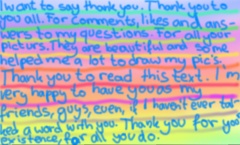 I want to say thank you. Thank you to
you all. For comments, likes and ans-
wers to my questions. For all your
picturs. They are beautiful and some
helped me a lot to draw my pic's.
Thank you to read this text. I'm
very happy to have you as my
friends, guys, even, if I haven't ever tal-
ked a word with you. Thank you for your
existence, for all you do.